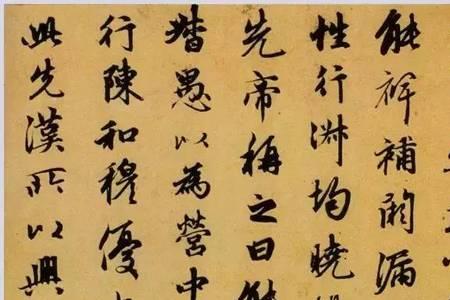 能裨補闕漏
性行淑均曉
先帝稱之曰能
督愚以為營中
行陳和穆優
此先漢所以興